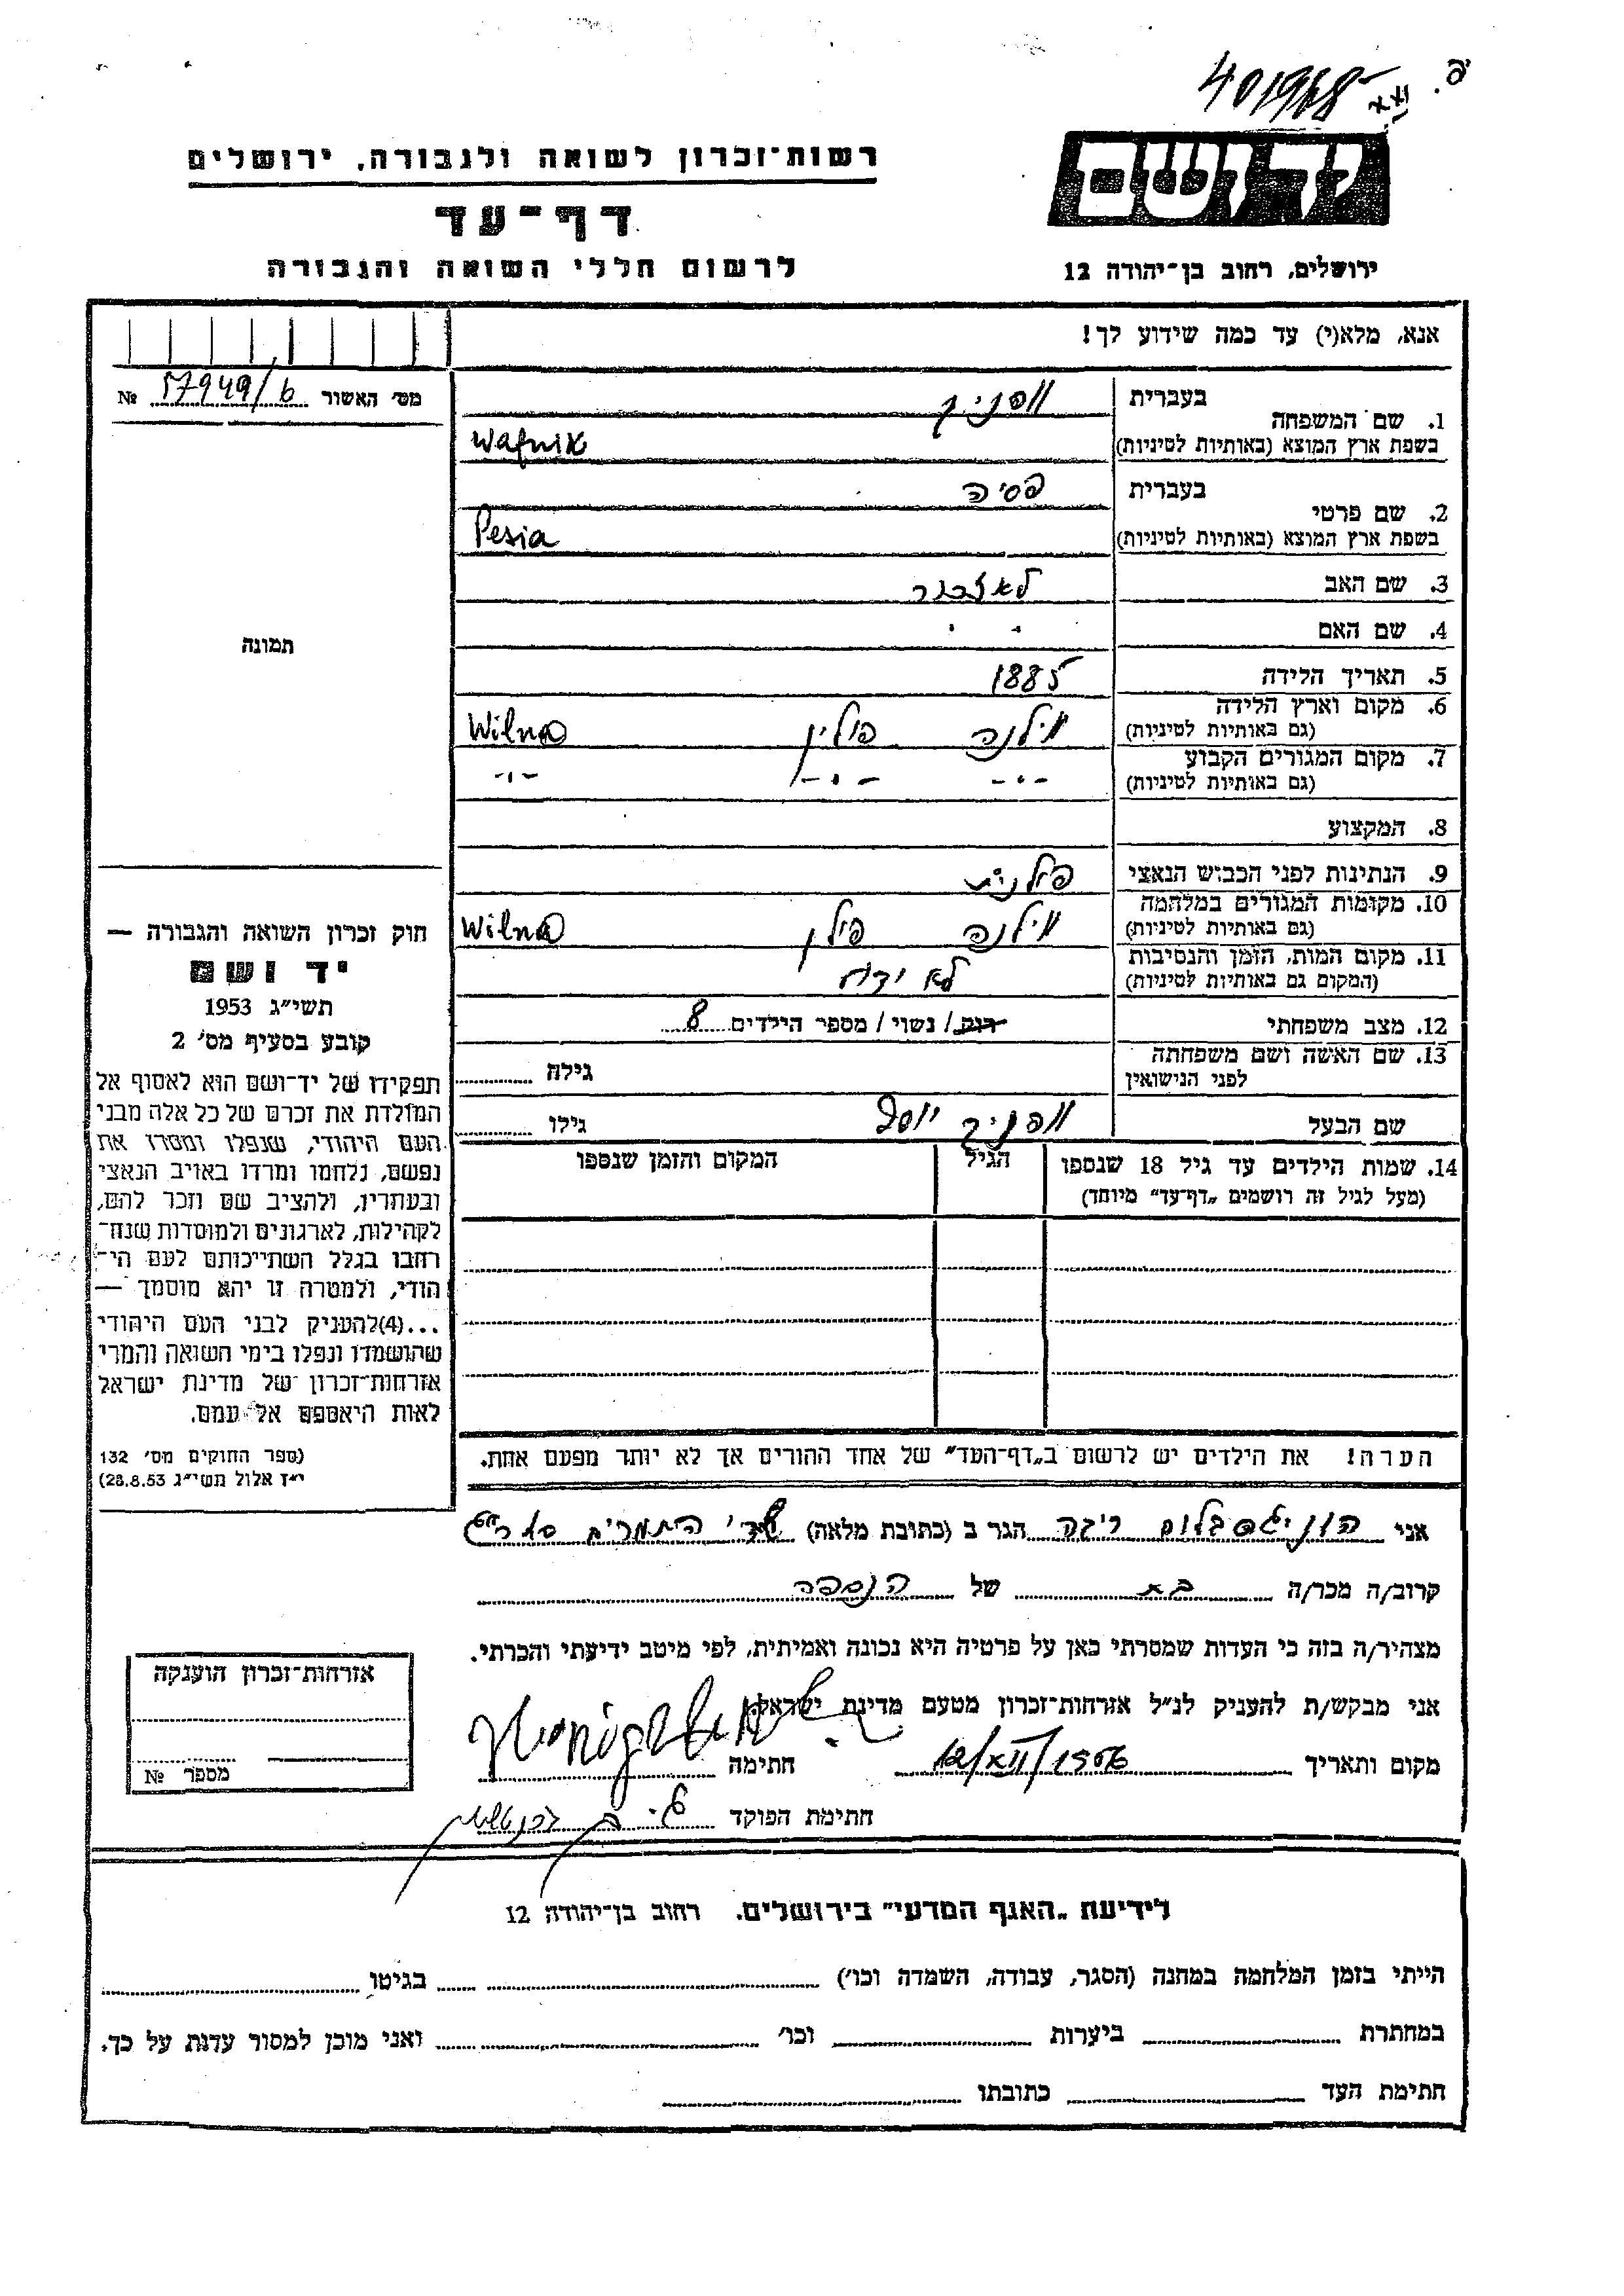 401968
יד ושם
רשות־זכרון לשואה ולגבורה, ירושלים
דף־עד
לרשום חללי השואה והגבורה
ירושלים, רחוב בן־יהודה 12
אנא, מלא(י) עד כמה שידוע לך!
מס׳ האשור 57949/6 №
1. שם המשפחה
בעברית וופניק
בשפת ארץ המוצא (באותיות לטיניות) Wafnik
2. שם פרטי
בעברית פסיה
בשפת ארץ המוצא (באותיות לטיניות) Pesia
3. שם האב
4. שם האם - -
5. תאריך הלידה 1885
6. מקום וארץ הלידה
(גם באותיות לטיניות) ווילנה פולין Wilna
7. מקום המגורים הקבוע
(גם באותיות לטיניות) -"- -"- -"-
8. המקצוע
9. הנתינות לפני הכבוש הנאצי פולנית
10. מקומות המגורים במלחמה
(גם באותיות לטיניות) ווילנה פולין Wilna
11. מקום המות, הזמן והנסיבות
(המקום גם באותיות לטיניות) לא ידוע
12. מצב משפחתי רווק / נשוי / מספר הילדים 8
13. שם האשה ושם משפחתה
לפני הנישואין גילה
שם הבעל וופניק יוסף גילו
14. שמות הילדים עד גיל 18 שנספו
(מעל לגיל זה רושמים „דף־עד" מיוחד)
הגיל
המקום והזמן שנספו
הערה! את הילדים יש לרשום ב„דף־העד" של אחד ההורים אך לא יותר מפעם אחת.
תמונה
חוק זכרון השואה והגבורה —
יד ושם
תשי״ג 1953
קובע בסעיף מס׳ 2
תפקידו של יד־ושם הוא לאסוף אל
המולדת את זכרם של כל אלה מבני
העם היהודי, שנפלו ומסרו את
נפשם, נלחמו ומרדו באויב הנאצי
ובעוזריו, ולהציב שם וזכר להם,
לקהילות, לארגונים ולמוסדות שנח־
רחבו בגלל השתייכותם לעם הי־
הודי, ולמטרה זו יהא מוסמך —
...(4)להעניק לבני העם היהודי
שהושמדו ונפלו בימי השואה והמרי
אזרחות־זכרון של מדינת ישראל
לאות היאספם אל עמם.
(ספר החוקים מס׳ 132
י״ז אלול תשי״ג 28.8.53)
אני הוניגסבלום ריבה הגר ב (כתובת מלאה)
קרוב/ה מכר/ה בת של הנספה
מצהיר/ה בזה כי העדות שמסרתי כאן על פרטיה היא נכונה ואמיתית, לפי מיטב ידיעתי והכרתי.
אני מבקש/ת להעניק לנ״ל אזרחות־זכרון מטעם מדינת ישראל.
מקום ותאריך 12/XII/1956 חתימה
חתימת הפוקד
אזרחות־זכרון הוענקה
מספר №
לידיעת „האגף המדעי" בירושלים. רחוב בן־יהודה 12
הייתי בזמן המלחמה במחנה (הסגר, עבודה, השמדה וכו׳) בגיטו
במחתרת ביערות וכו׳ ואני מוכן למסור עדות על כך.
חתימת העד כתובתו